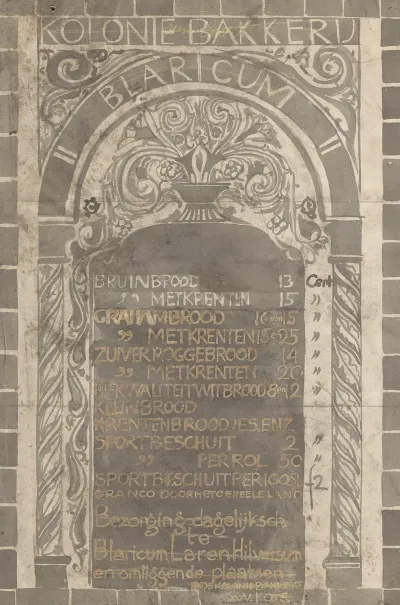 KOLONIE BAKKERIJ
BLARICUM
BRUINBROOD 13 Cent
,, METKRENTEN 15 ,,
GRAHAMBROOD 15 ,,
,, METKRENTEN 25 ,,
ZUIVERROGGEBROOD 14 ,,
,, METKRENTEN 20 ,,
KWALITEITWITBROOD 8 en 12 ,,
KLEINBROOD
KRENTENBROODJES ENZ.
SPORTBESCHUIT 2 ,,
,, PER ROL 50 ,,
SPORTBESCHUIT PER 100 ST. f2
FRANCO DOOR HET GEHEELE LAND
Bezorging dagelijksch
te
Blaricum Laren Hilversum
en omliggende plaatsen